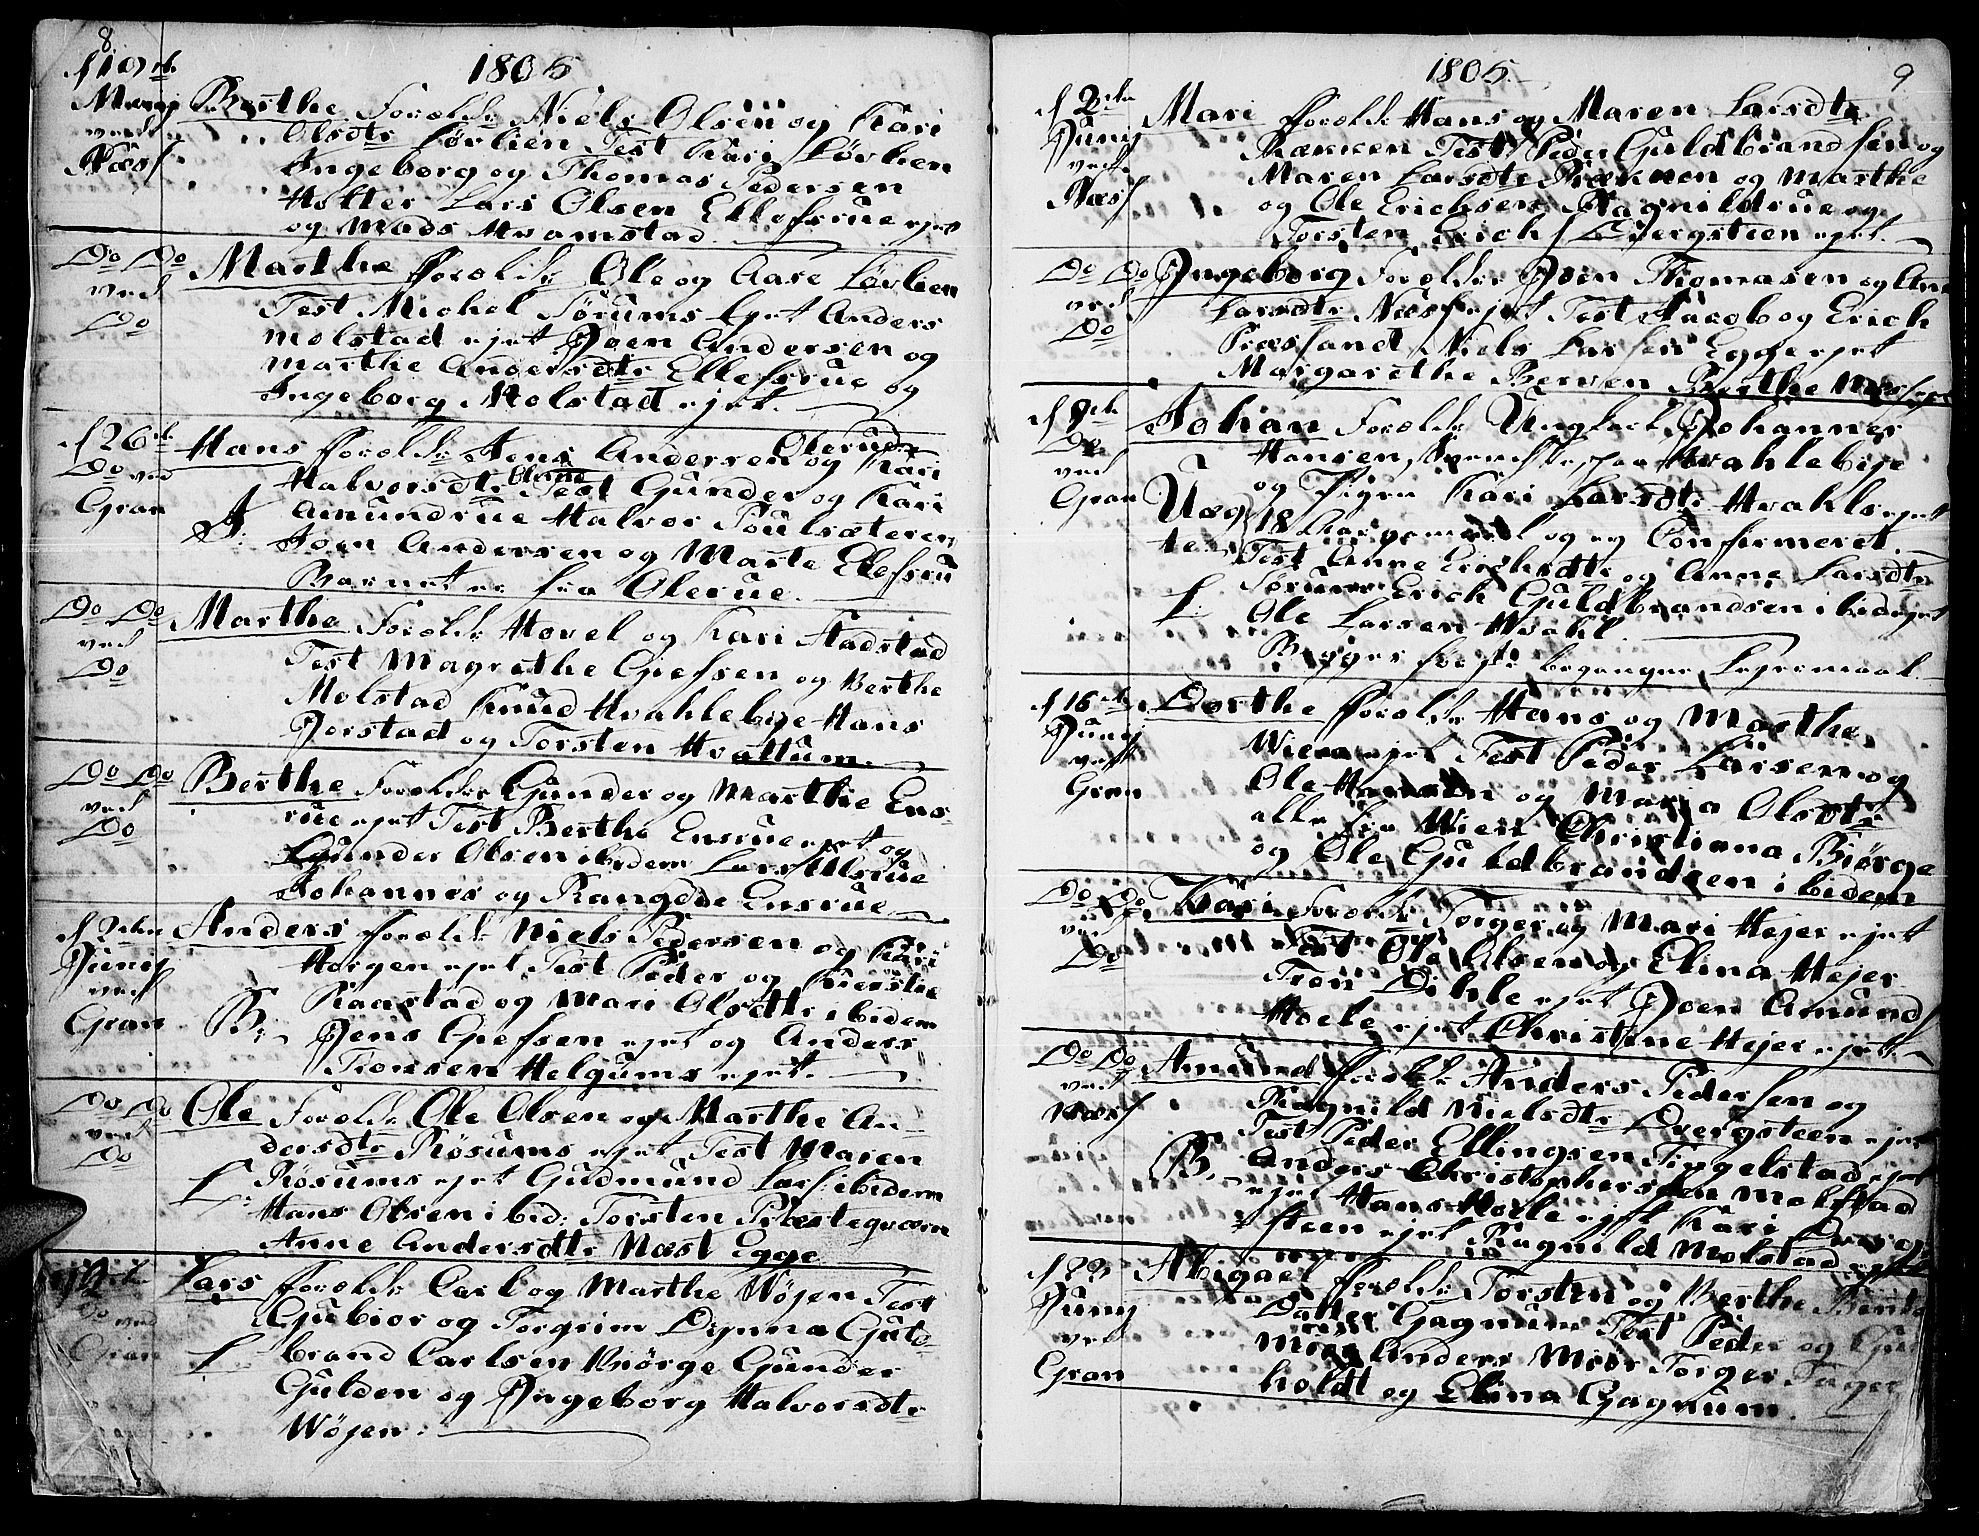 8.
1805
d 19de
Maij
ved
Næs
Berthe Foreldr: Niels Olsen og Kari
Olsdtr Lørlien Test Kari Lørlien
Ingeborg og Thomas Pedersen
Hotter Lars Olsen Ellefsrue ejet
og Mads Hvamstad
Do Do
ved
Do
Marthe Foreldr: Ole og Aase Løvlien
Test Michel Sørums ejet Anders
Molstad ejet Joen Andersen og
Marthe Andersdtr Ellefsrue og
Ingeborg Molstad ejet.
d 26de
Do ved
Gran
Hans Foreldr: Jens Andersen Olerud og Kari
Halvorsdtr Olerue Test Gunder og Kari
Amundrue Halvor Poulsæteren
Joen Andersen og Marte Elefsru
Barnet er fra Olerue.
Do Do
ved
Do
Marthe Foreldr: Hovel og Kari Stadstad
Test Magrethe Gjefsen og Berthe
Molstad Knud Hvahlebye Hans
Jorstad og Torsten Hvattum.
Do Do
ved
Do
Berthe Foreldr: Gunder og Marthe Ens-
rue ejet Test Berthe Ensrue ejet og
Gunder Olsen ibidem Lars Ulsrue
Johannes og Rangdde Ensrue
d 3die
Junij
ved
Gran
Anders Foreldr: Niels Pedersen og Kari
Horgen ejet Test Peder og Kierstie
Raastad og Mari Olsdtr ibidem
B: Jens Gjefsen ejet og Anders
Tronsen Helgums ejet.
Do Do
ved
Do
Ole Foreldr: Ole Olsen og Marthe An-
dersdtr Røsums ejet Test Maren
Røsums ejet Gudmund Lars: ibidem
Hans Olsen ibid: Torsten Præsteqværn
Anne Andersdtr Næst Egge
Do ved
Gran
Lars Foreldr: Carl og Marthe Wøjen Test
Gubiør og Torgrim Dynna Gul-
brand Carlsen Biørge Gunder
Gulden og Ingeborg Halvorsdtr
Wøjen:
1805.
9
d 2den
Junij
ved
Næs
Mari Foreldr: Hans og Maren Larsdtr
Rækken Test Peder Guldbrandsen og
Maren Larsdtr Rækken og Marthe
og Ole Erichsen Ragnildrue og
Torsten Erichs: Dvergsteen ejet.
Do Do
ved
Do
Ingeborg Foreldr: Joen Thomasen og Ane
Larsdtr Næs ejet Test Jacob og Erich
Præstand Niels Larsen Egge ejet
Margarethe Berven Berthe Næs ejet
d 9de
Do
ved
Gran
Uæg-
te
Johan Foreldr: Ungkarl Johannes
Hansen, Svendsk, paa Hvahlebye
og Pigen Kari Larsdtr Hvahls ejet
18 Aar gammel og ey Confirmeret.
Test Anne Erichsdtr og Anne Larsdtr
Sørum Erich Guldbrandsen ibid ejet
Ole Larsen Hvahl
Begges første begangne Lejermaal.
d 16de
Junij
ved
Gran
Dorthe Foreldr: Hans og Marthe
Wiens ejet Test Peder Larsen og
Ole Hansen og Maria Olsdtr
alle fra Wien Christiana Biørge
og Ole Guldbrandsen ibidem
Do Do
ved
Do
Kari Foreldr: Torger og Mari Hejer ejet
Test Ole Olsen og Elina Hejer
Tron Dihle ejet Joen Amunds
Hoele ejet Christine Hejer ejet.
Do Do
ved
Næs
Amund Foreldr: Anders Pedersen og
Ragnild Nielsdtr Dvergsteen ejet
Test Peder Ellingsen Tingelstad ejet
B. Anders Christophersen Molstad
ejet Hans Hoele ejet Kari Dverg-
steen ejet Ragnild Molstad ejet
d 23
Junij
ved
Gran
Abigael Foreldr: Torsten og Berthe Bents
Datter Gagnum Test Peder og Gu
Moen Anders Moer Torger Tinger
holdt og Elina Gagnum.